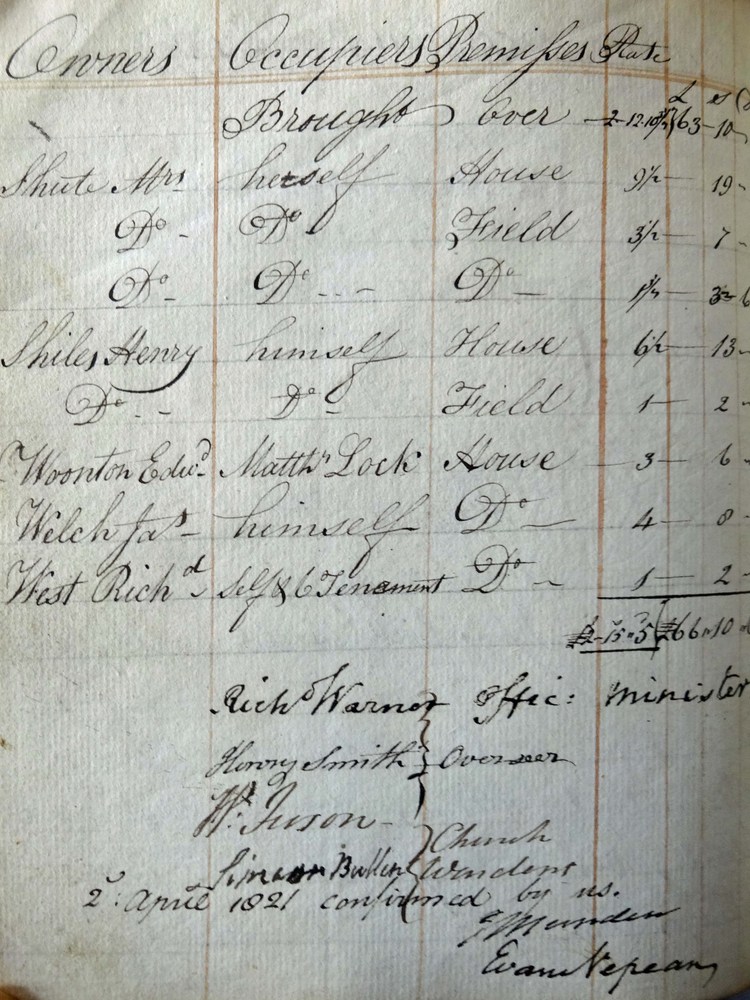 Owners Occupiers Premisses Rate
£ s
Brought Over 2-12-10½ 163-10
Shute Mrs herself House 9½ 19-
Do - Do Field 3½ 7-
Do - Do - - - Do - 1¾ 3-6
Shiles Henry himself House 6½ 13-
Do - - Do Field 1 2-
Woonton Edwd Matthw Lock House 3 6-
Welch Jas - himself Do - 4 8-
West Richd - Self & 6 Tenament Do - 1 2-
£2-15-5 £166-10
Richd Warner Offic: Minister
Henry Smith } Overseer
Wm Juson -
} Church
Simeon Bullen Wardens
2d: April 1821 confirmed by us.
J Munden
Evan Nepean